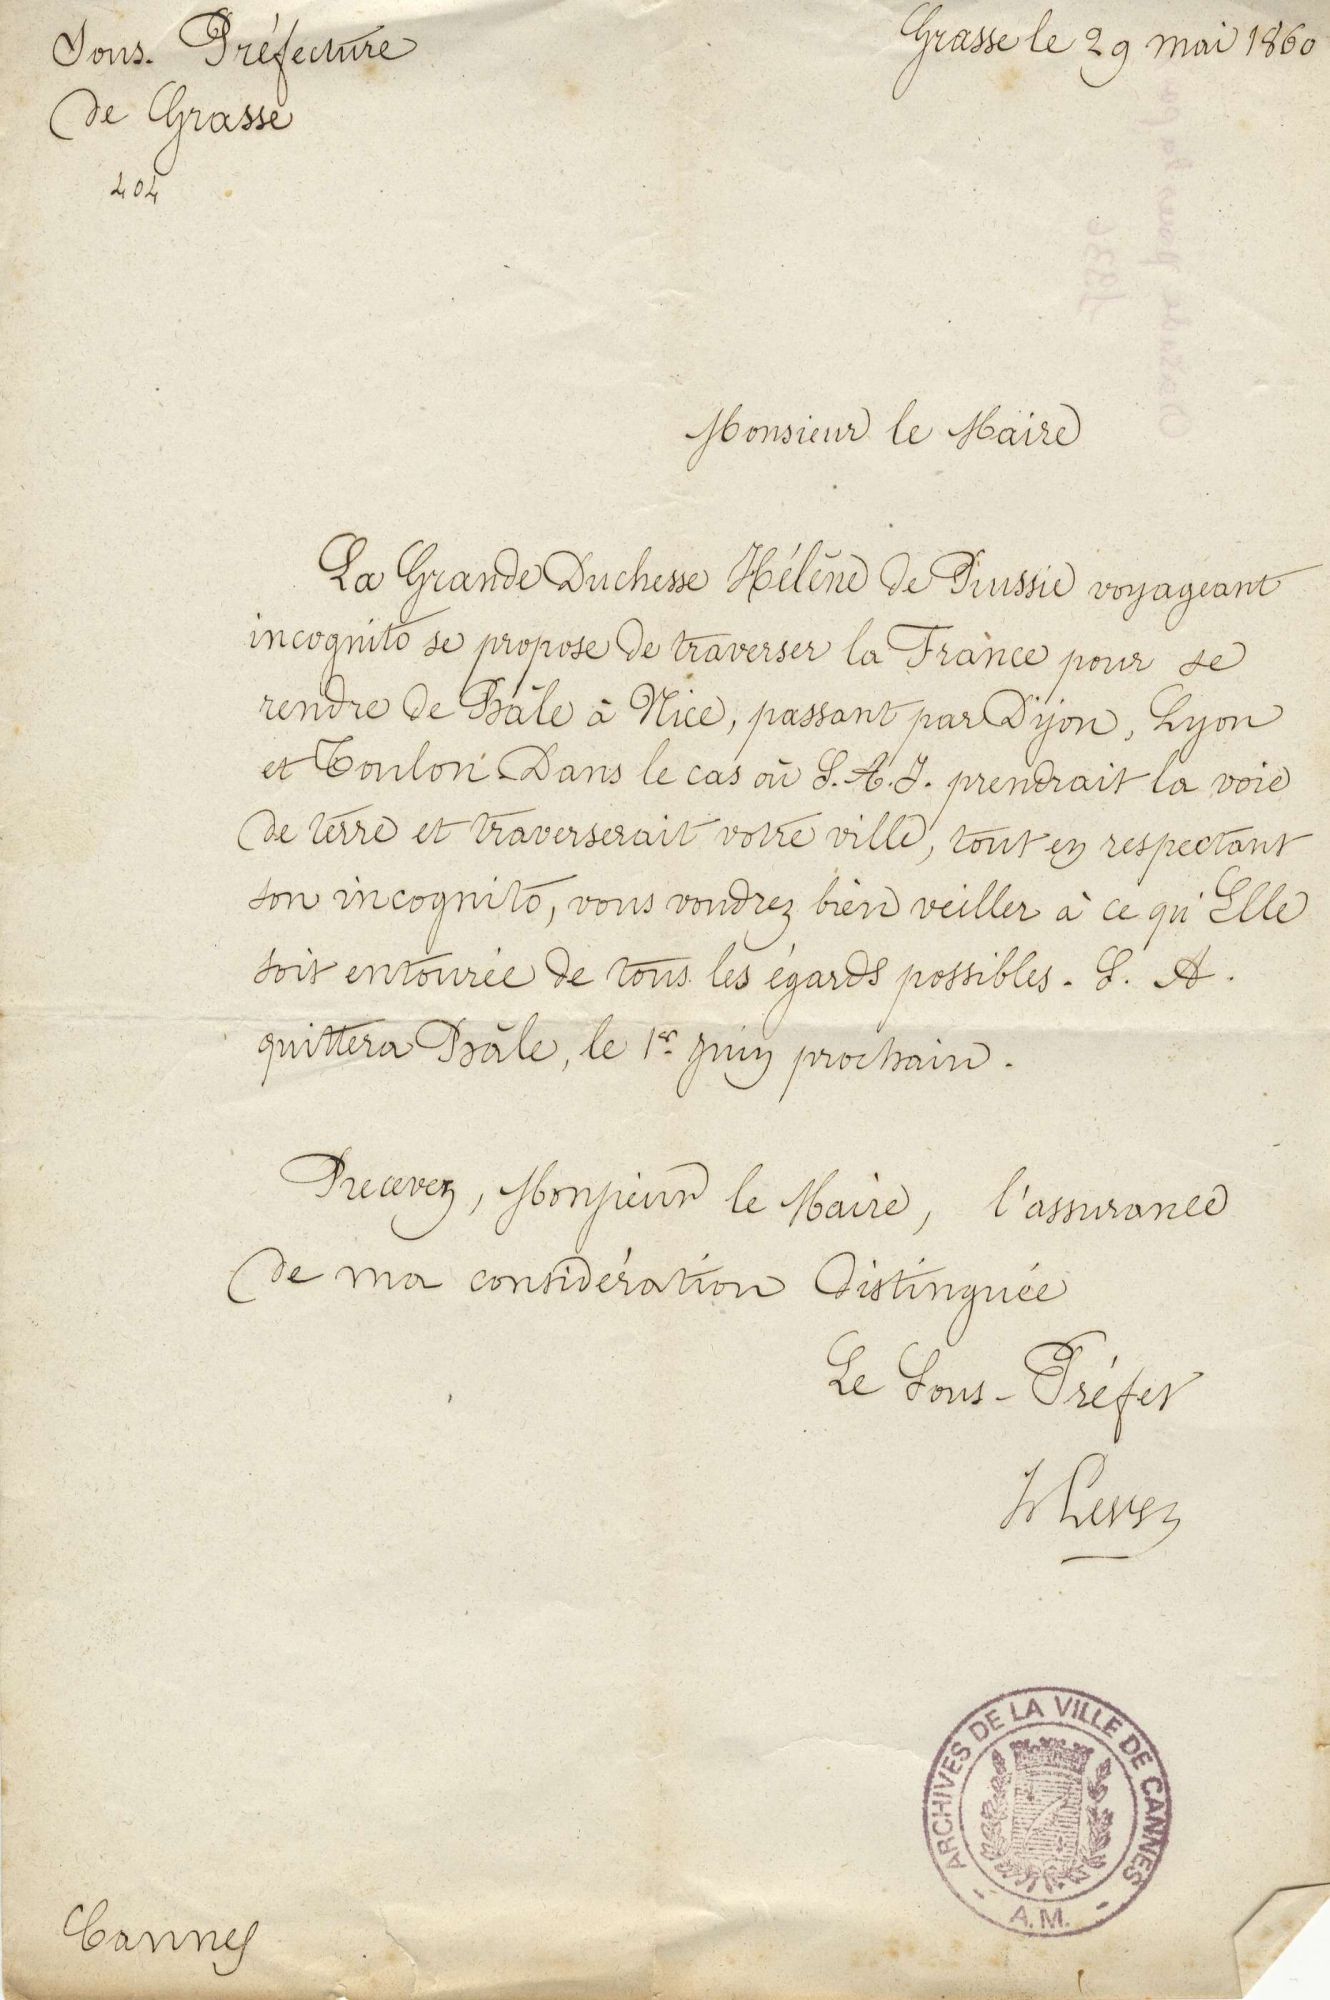 Sous-Préfecture
de Grasse
404
Grasse le 29 mai 1860
Monsieur le Maire
La Grande Duchesse Hélène de Russie voyageant
incognito se propose de traverser la France pour se
rendre de Bâle à Nice, passant par Dijon, Lyon
et Toulon. Dans le cas où S.A.I. prendrait la voie
de terre et traverserait votre ville, tout en respectant
son incognito, vous voudrez bien veiller à ce qu'Elle
soit entourée de tous les égards possibles. S. A.
quittera Bâle, le 1er juin prochain.
Recevez, Monsieur le Maire, l'assurance
de ma considération distinguée
Le Sous-Préfet
ARCHIVES DE LA VILLE DE CANNES
- A.M. -
Cannes